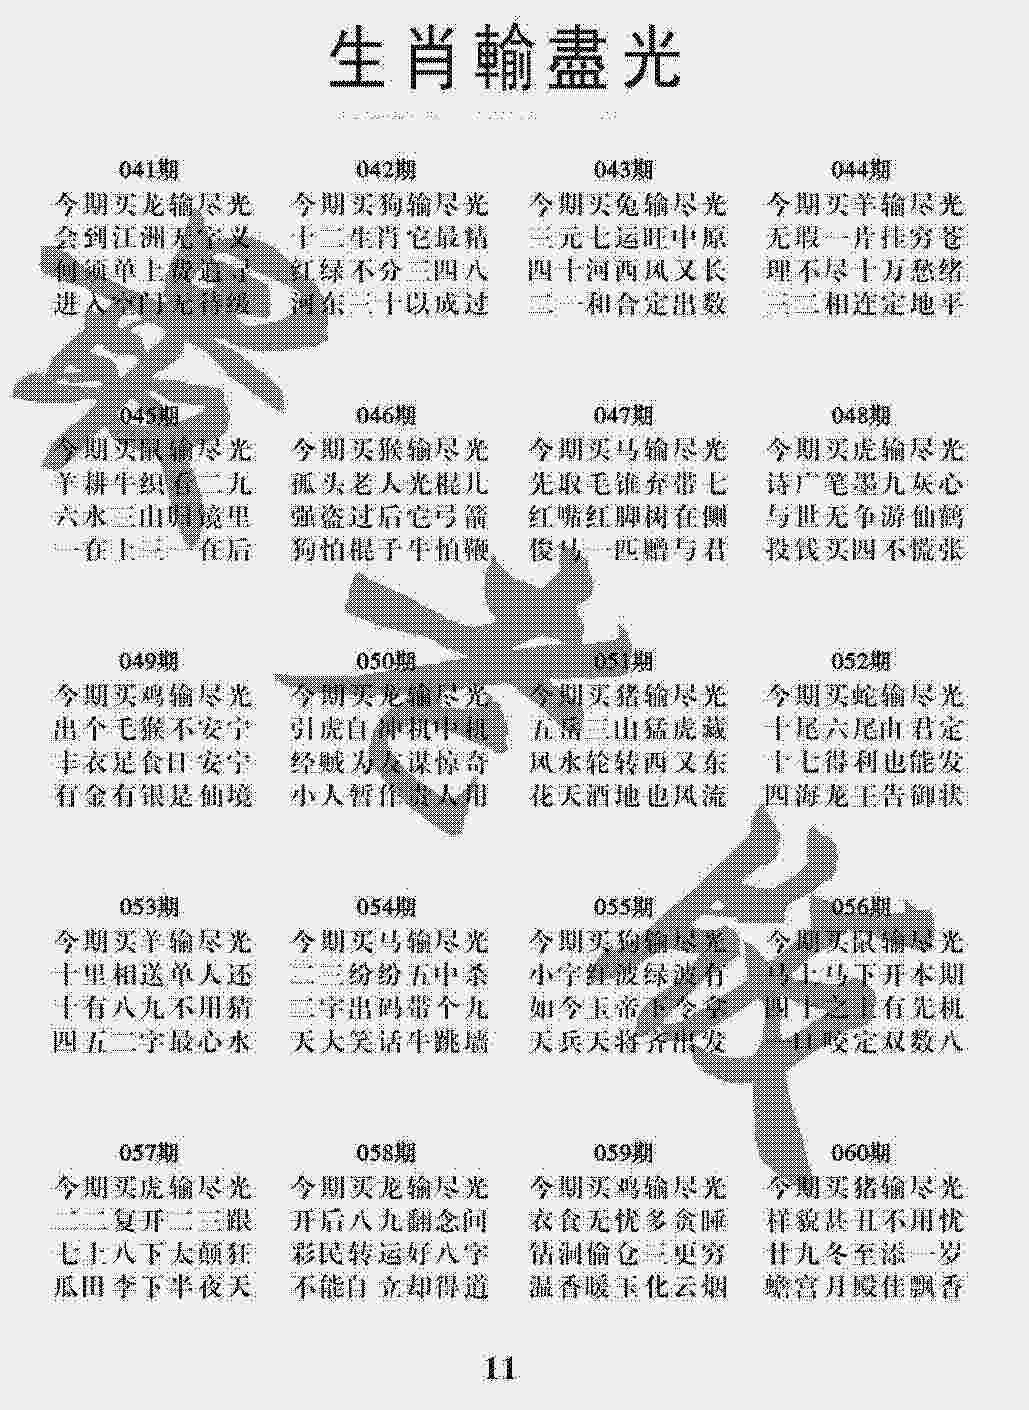 生肖輸盡光
041期
今期买龙输尽光
会到江洲无字义
何须单上
进入空门无
042期
今期买狗输尽光
十二生肖它最精
红绿不分三四八
河东三十以成过
043期
今期买兔输尽光
三元七运旺中原
四十河西风又长
二一和合定出数
044期
今期买羊输尽光
无瑕一片挂穷苍
理不尽十万愁绪
三二相连定地平
045期
今期买鼠输尽光
羊耕牛织有二九
六水三山归镜里
一在上三一在后
046期
今期买猴输尽光
孤头老人光棍儿
强盗过后它弓箭
狗怕棍子牛怕鞭
047期
今期买马输尽光
先取毛锥弃带七
红嘴红脚树在侧
俊马一匹赠与君
048期
今期买虎输尽光
诗广笔墨九灰心
与世无争游仙鹤
投钱买四不慌张
049期
今期买鸡输尽光
出个毛猴不安宁
丰衣足食日安宁
有金有银是仙境
050期
今期买龙输尽光
引虎自冲机中机
经贼为友谋惊奇
小人暂作贵人用
051期
今期买猪输尽光
五落三山猛虎藏
风水轮转西又东
花天酒地也风流
052期
今期买蛇输尽光
十尾六尾由君定
十七得利也能发
四海龙王告御状
053期
今期买羊输尽光
十里相送单人还
十有八九不用猜
四五二字最心水
054期
今期买马输尽光
二三纷纷五中杀
二字出码带个九
天大笑话牛跳墙
055期
今期买狗输尽光
小字红波绿波有
如今玉帝下令拿
天兵天将齐出发
056期
今期买鼠输尽光
马上马下开本期
四十之上有先机
一口咬定双数八
057期
今期买虎输尽光
二二复开二三跟
七上八下太颠狂
瓜田李下半夜天
058期
今期买龙输尽光
开后八九翻念问
彩民转运好八字
不能自立却得道
059期
今期买鸡输尽光
衣食无忧多贪睡
钻洞偷仓三更穷
温香暖玉化云烟
060期
今期买猪输尽光
样貌甚丑不用忧
廿九冬至添一岁
蟾宫月殿佳飘香
11